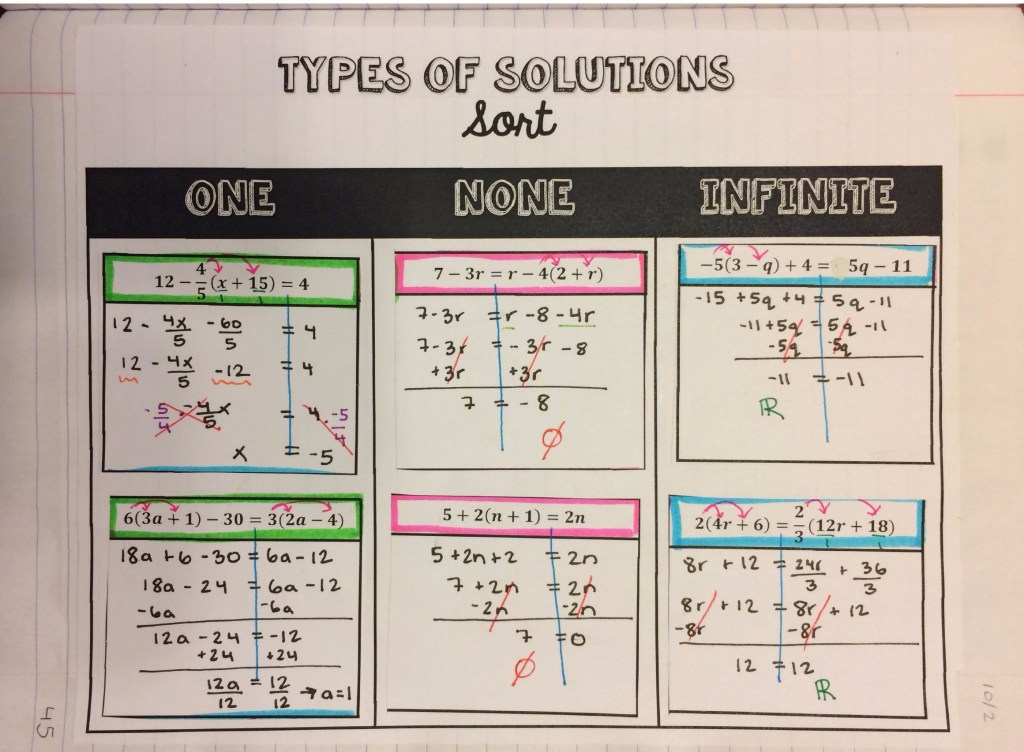 TYPES OF SOLUTIONS
Sort
ONE
NONE
INFINITE
12 − 4/5(x + 15) = 4
12 - 4x/5 - 60/5 = 4
12 - 4x/5 - 12 = 4
-5/4 · -4/5 x = 4 · -5/4
x = -5
7 − 3r = r − 4(2 + r)
7-3r = r - 8 - 4r
7-3r = -3r - 8
+3r +3r
7 = -8
∅
−5(3 − q) + 4 = 5q − 11
-15 + 5q + 4 = 5q - 11
-11 + 5q = 5q - 11
-5q -5q
-11 = -11
ℝ
6(3a + 1) − 30 = 3(2a − 4)
18a + 6 - 30 = 6a - 12
18a - 24 = 6a - 12
-6a -6a
12a - 24 = -12
+24 +24
12a/12 = 12/12 → a=1
5 + 2(n + 1) = 2n
5 + 2n + 2 = 2n
7 + 2n = 2n
-2n -2n
7 = 0
∅
2(4r + 6) = 2/3(12r + 18)
8r + 12 = 24r/3 + 36/3
8r + 12 = 8r + 12
-8r -8r
12 = 12
ℝ
45
10/2